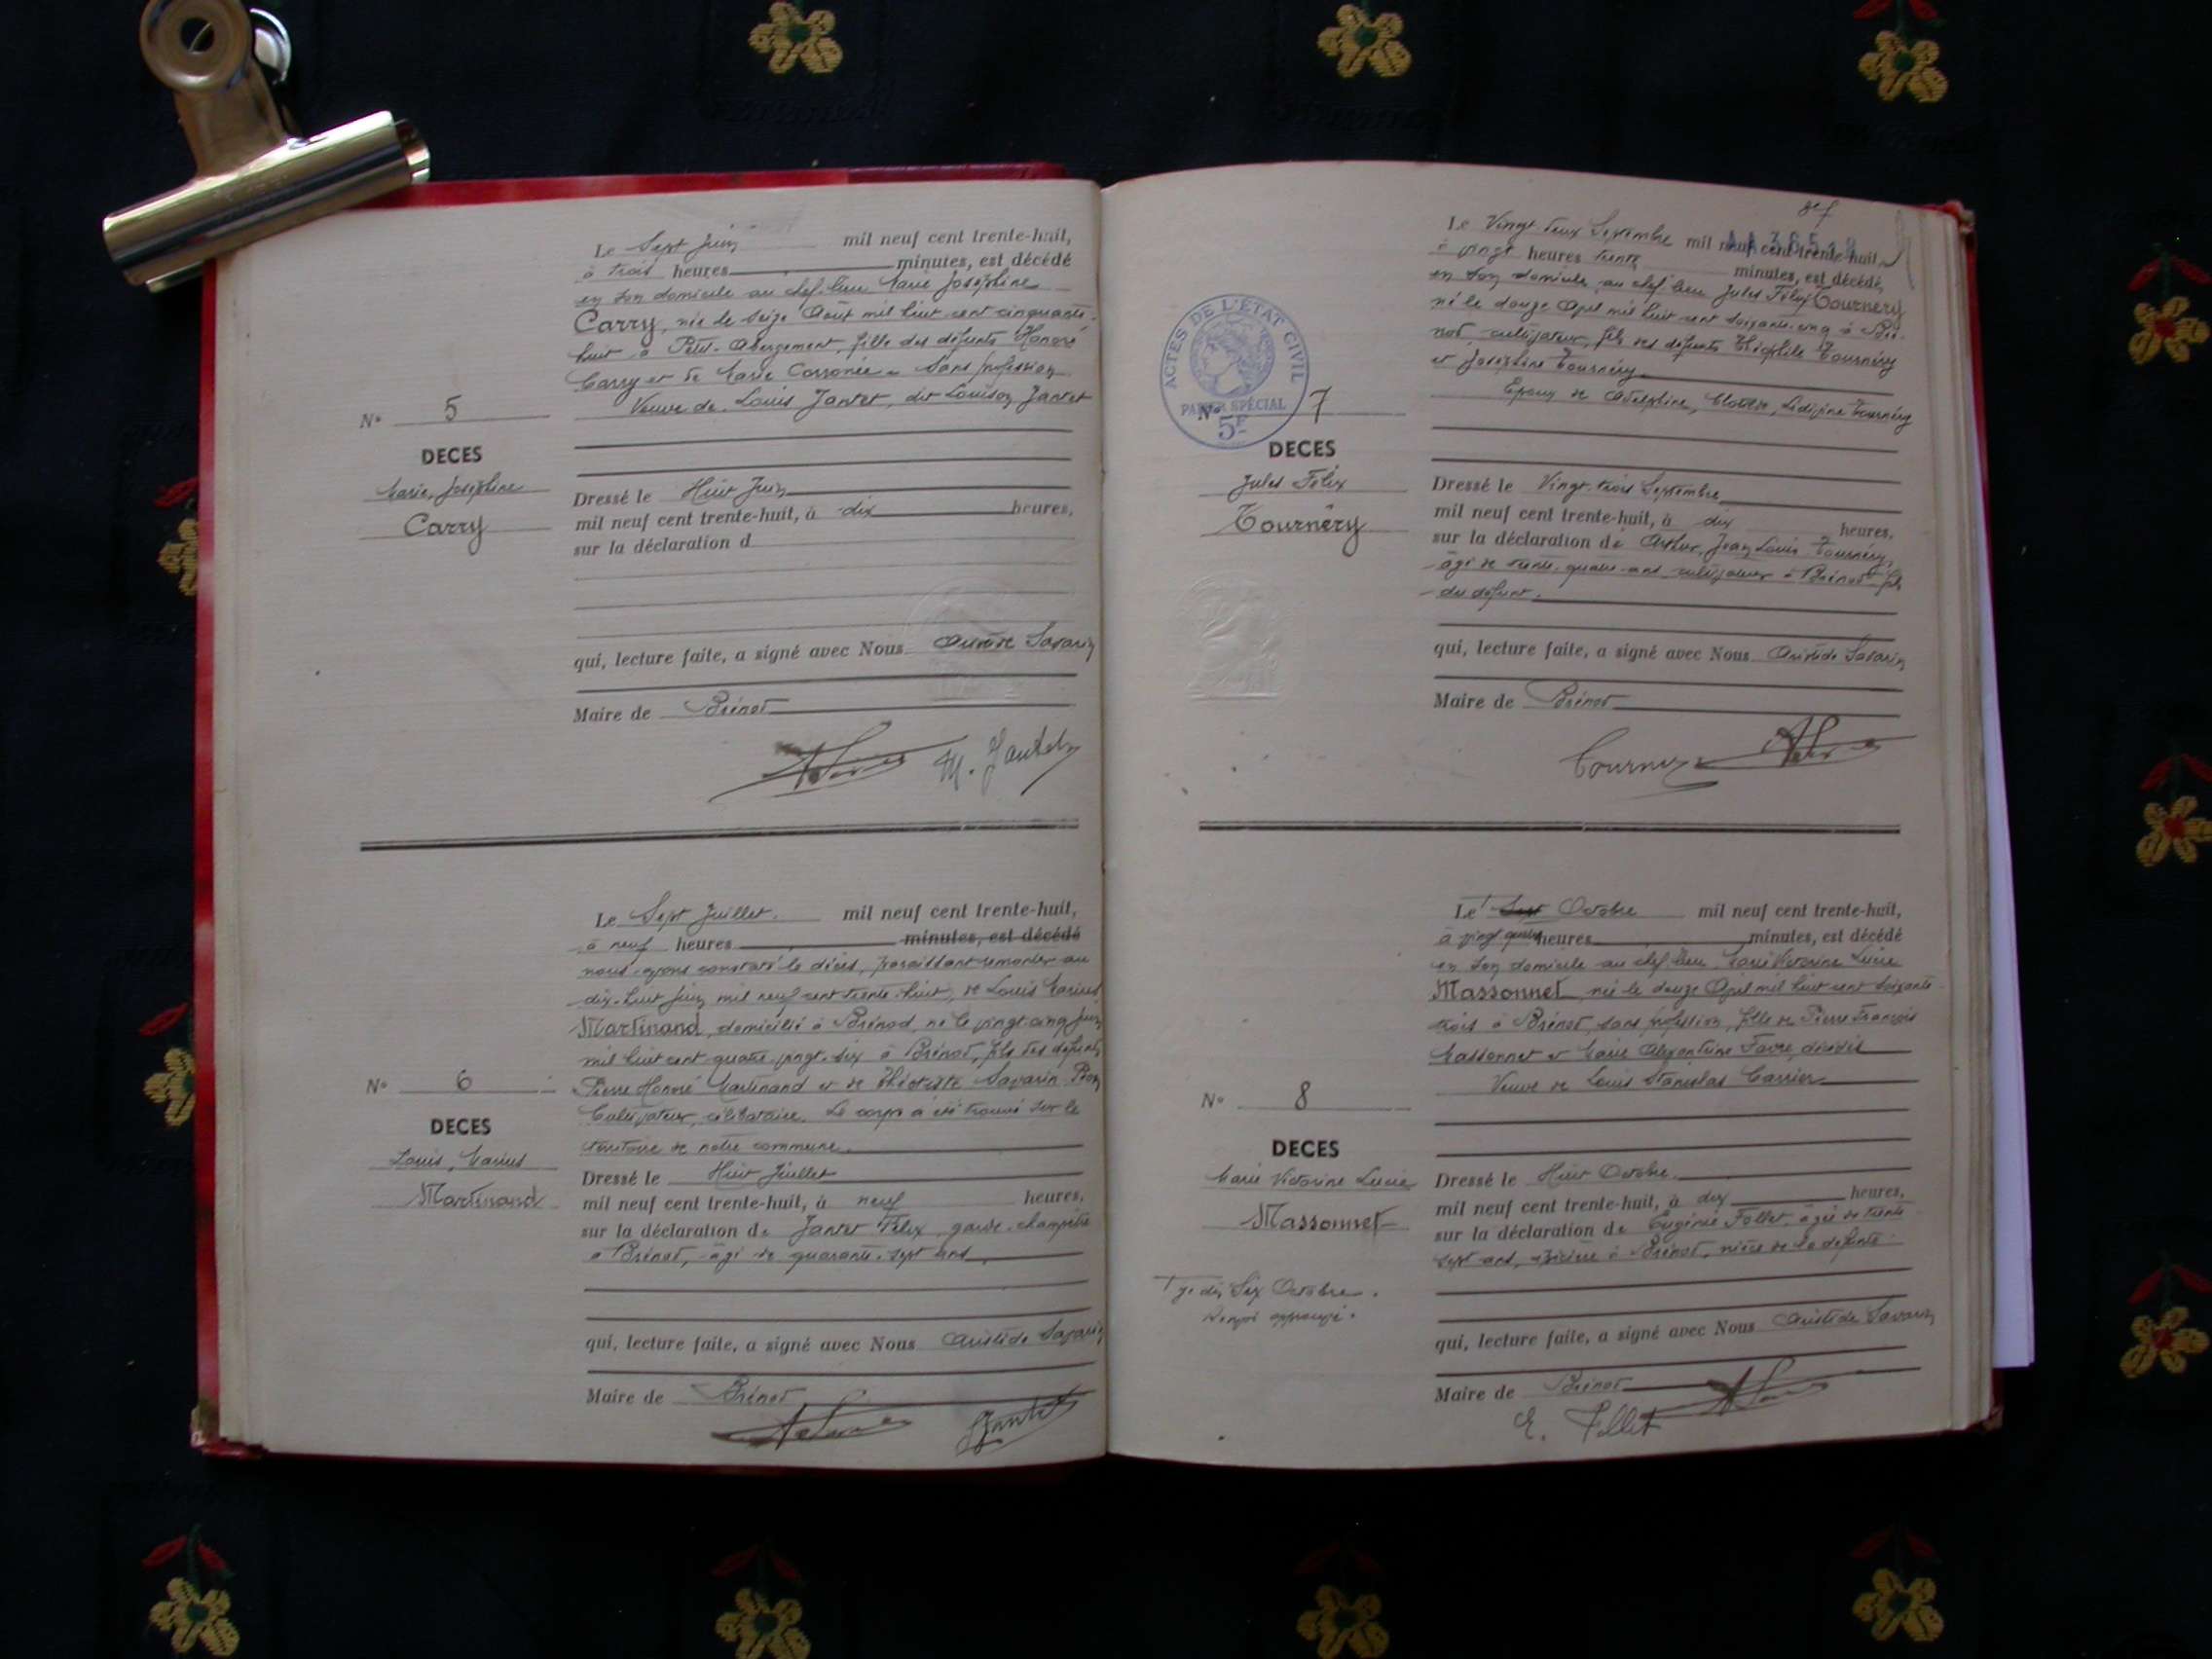 Le Sept Juin mil neuf cent trente-huit,
à trois heures minutes, est décédé
en son domicile au chef-lieu Marie Joséphine
Carry, née le seize Août mil huit cent cinquante-
huit à Petit-Abergement, fille des défunts Honoré
Carry et de Marie Sans profession
Veuve de Louis Jantet, dit Louison Jantet
N° 5
DECES
Marie, Joséphine
Carry
Dressé le Huit Juin
mil neuf cent trente-huit, à dix heures,
sur la déclaration d
qui, lecture faite, a signé avec Nous Aristide Savarin
Maire de Brénod
M. Jantet
Le Sept Juillet. mil neuf cent trente-huit,
à neuf heures minutes, est décédé
nous avons constaté le décès, paraissant remonter au
dix-huit Juin mil neuf cent trente-huit, de Louis Marius
Martinand, domicilié à Brénod, né le vingt-cinq Juin
mil huit cent quatre-vingt-six à Brénod, fils des défunts
Pierre Honoré Martinand et de Théotiste Savarin
Cultivateur, célibataire. Le corps a été trouvé sur le
territoire de notre commune.
N° 6
DECES
Louis, Marius
Martinand
Dressé le Huit Juillet
mil neuf cent trente-huit, à neuf heures,
sur la déclaration de Jantet Félix, garde-champêtre
à Brénod, âgé de quarante-sept ans
qui, lecture faite, a signé avec Nous Aristide Savarin
Maire de Brénod
Jantet
Le Vingt deux Septembre mil neuf cent trente-huit,
à vingt heures trente minutes, est décédé,
en son domicile au chef-lieu Jules Félix Tournéry
né le douze Avril mil huit cent soixante-cinq à Bré-
nod cultivateur, fils des défunts Théophile Tournéry
et Joséphine Tournéry.
Epoux de Adelphine, Clotilde, Tournéry
ACTES DE L'ÉTAT CIVIL
PAPIER SPÉCIAL
5F
N° 7
DECES
Jules Félix
Tournéry
Dressé le Vingt-trois Septembre
mil neuf cent trente-huit, à dix heures,
sur la déclaration de Arthur, Jean Louis Tournéry,
âgé de trente-quatre ans cultivateur à Brénod fils
du défunt.
qui, lecture faite, a signé avec Nous Aristide Savarin
Maire de Brénod
Tournery
Le Sept Octobre mil neuf cent trente-huit,
à vingt quatre heures minutes, est décédé
en son domicile au chef-lieu Marie Victorine Lucie
Massonnet née le douze Avril mil huit cent soixante-
trois à Brénod, sans profession, fille de Pierre François
Massonnet et Marie Alexandrine Favre, décédés
Veuve de Louis Stanislas Carrier
N° 8
DECES
Marie Victorine Lucie
Massonnet
Dressé le Huit Octobre.
mil neuf cent trente-huit, à dix heures,
sur la déclaration de Eugénie Follet, âgée de trente
sept ans, épicière à Brénod, nièce de la défunte
Six Octobre.
Renvoi approuvé.
qui, lecture faite, a signé avec Nous Aristide Savarin
Maire de Brénod
E. Follet